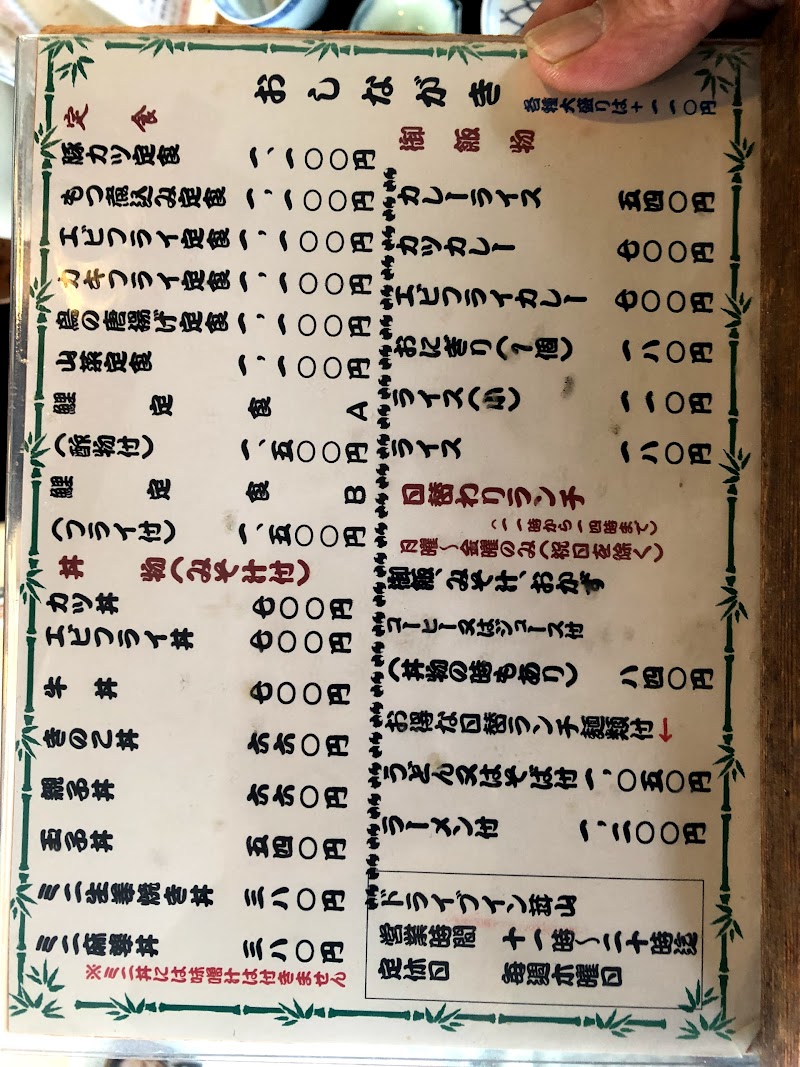 おしながき
各種大盛りは+一一〇円
定食
豚カツ定食 一、一〇〇円
もつ煮込み定食 一、一〇〇円
エビフライ定食 一、一〇〇円
カキフライ定食 一、一〇〇円
鳥の唐揚げ定食 一、一〇〇円
山菜定食 一、一〇〇円
鯉定食A
(酢物付) 一、五〇〇円
鯉定食B
(フライ付) 一、五〇〇円
丼物(みそ汁付)
カツ丼 七〇〇円
エビフライ丼 七〇〇円
牛丼 七〇〇円
きのこ丼 六六〇円
親子丼 六六〇円
玉子丼 五四〇円
ミニ生姜焼き丼 三八〇円
ミニ麻婆丼 三八〇円
※ミニ丼には味噌汁は付きません
御飯物
カレーライス 五四〇円
カツカレー 七〇〇円
エビフライカレー 七〇〇円
おにぎり(1個) 一八〇円
ライス(小) 一一〇円
ライス 一八〇円
日替わりランチ
(一一時から一四時まで)
月曜〜金曜のみ(祝日を除く)
御飯、みそ汁、おかず
コーヒー又はジュース付
(丼物の時もあり) 八四〇円
お得な日替ランチ麺類付←
うどん又はそば付 一、〇五〇円
ラーメン付 一、二〇〇円
ドライブイン
営業時間 十一時〜二十時迄
定休日 毎週水曜日